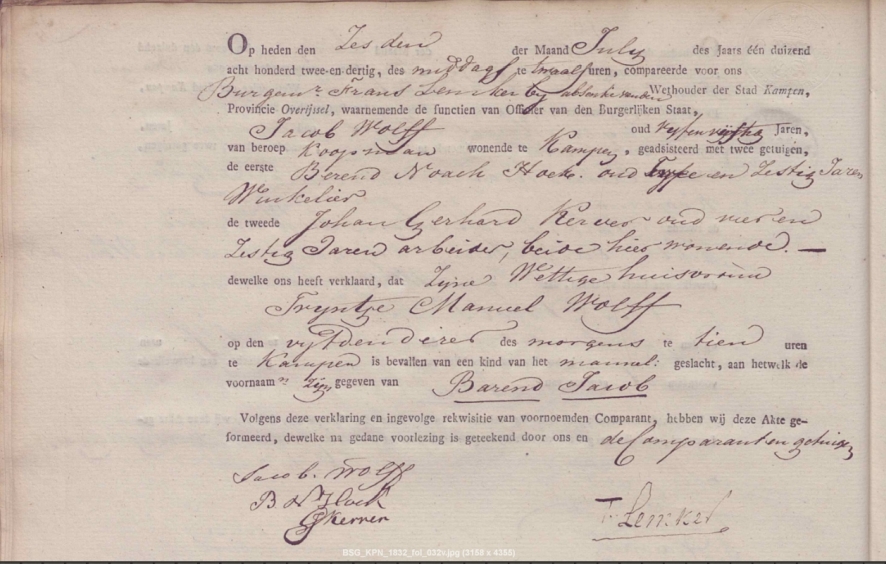 Op heden den Zesden der Maand July des Jaars één duizend
acht honderd twee-en-dertig, des middags te twaalf uren, compareerde voor ons
Burgemr. Frans Lemker by absentie van den Wethouder der Stad Kampen,
Provincie Overijssel, waarnemende de functien van Officier van den Burgerlijken Staat,
Jacob Wolff oud Jaren,
van beroep Koopman wonende te Kampen, geadsisteerd met twee getuigen,
de eerste Berend Noach Hoek. oud en Zestig Jaren
Winkelier
de tweede Johan Gerhard Kerver oud vier en
Zestig Jaren arbeider, beide hier wonende. —
dewelke ons heeft verklaard, dat Zyne Wettige huisvrouw
Tryntje Manuel Wolff
op den vyfden dezer des morgens te tien uren
te Kampen is bevallen van een kind van het mannel: geslacht, aan hetwelk de
voornaamn zyn gegeven van Barend Jacob
Volgens deze verklaring en ingevolge rekwisitie van voornoemden Comparant, hebben wij deze Akte ge-
formeerd, dewelke na gedane voorlezing is geteekend door ons en de Comparant en getuigen
Jacob. Wolff
B N Hoek
GKerver
F. Lemker
BSG_KPN_1832_fol_032v.jpg (3168 x 4355)